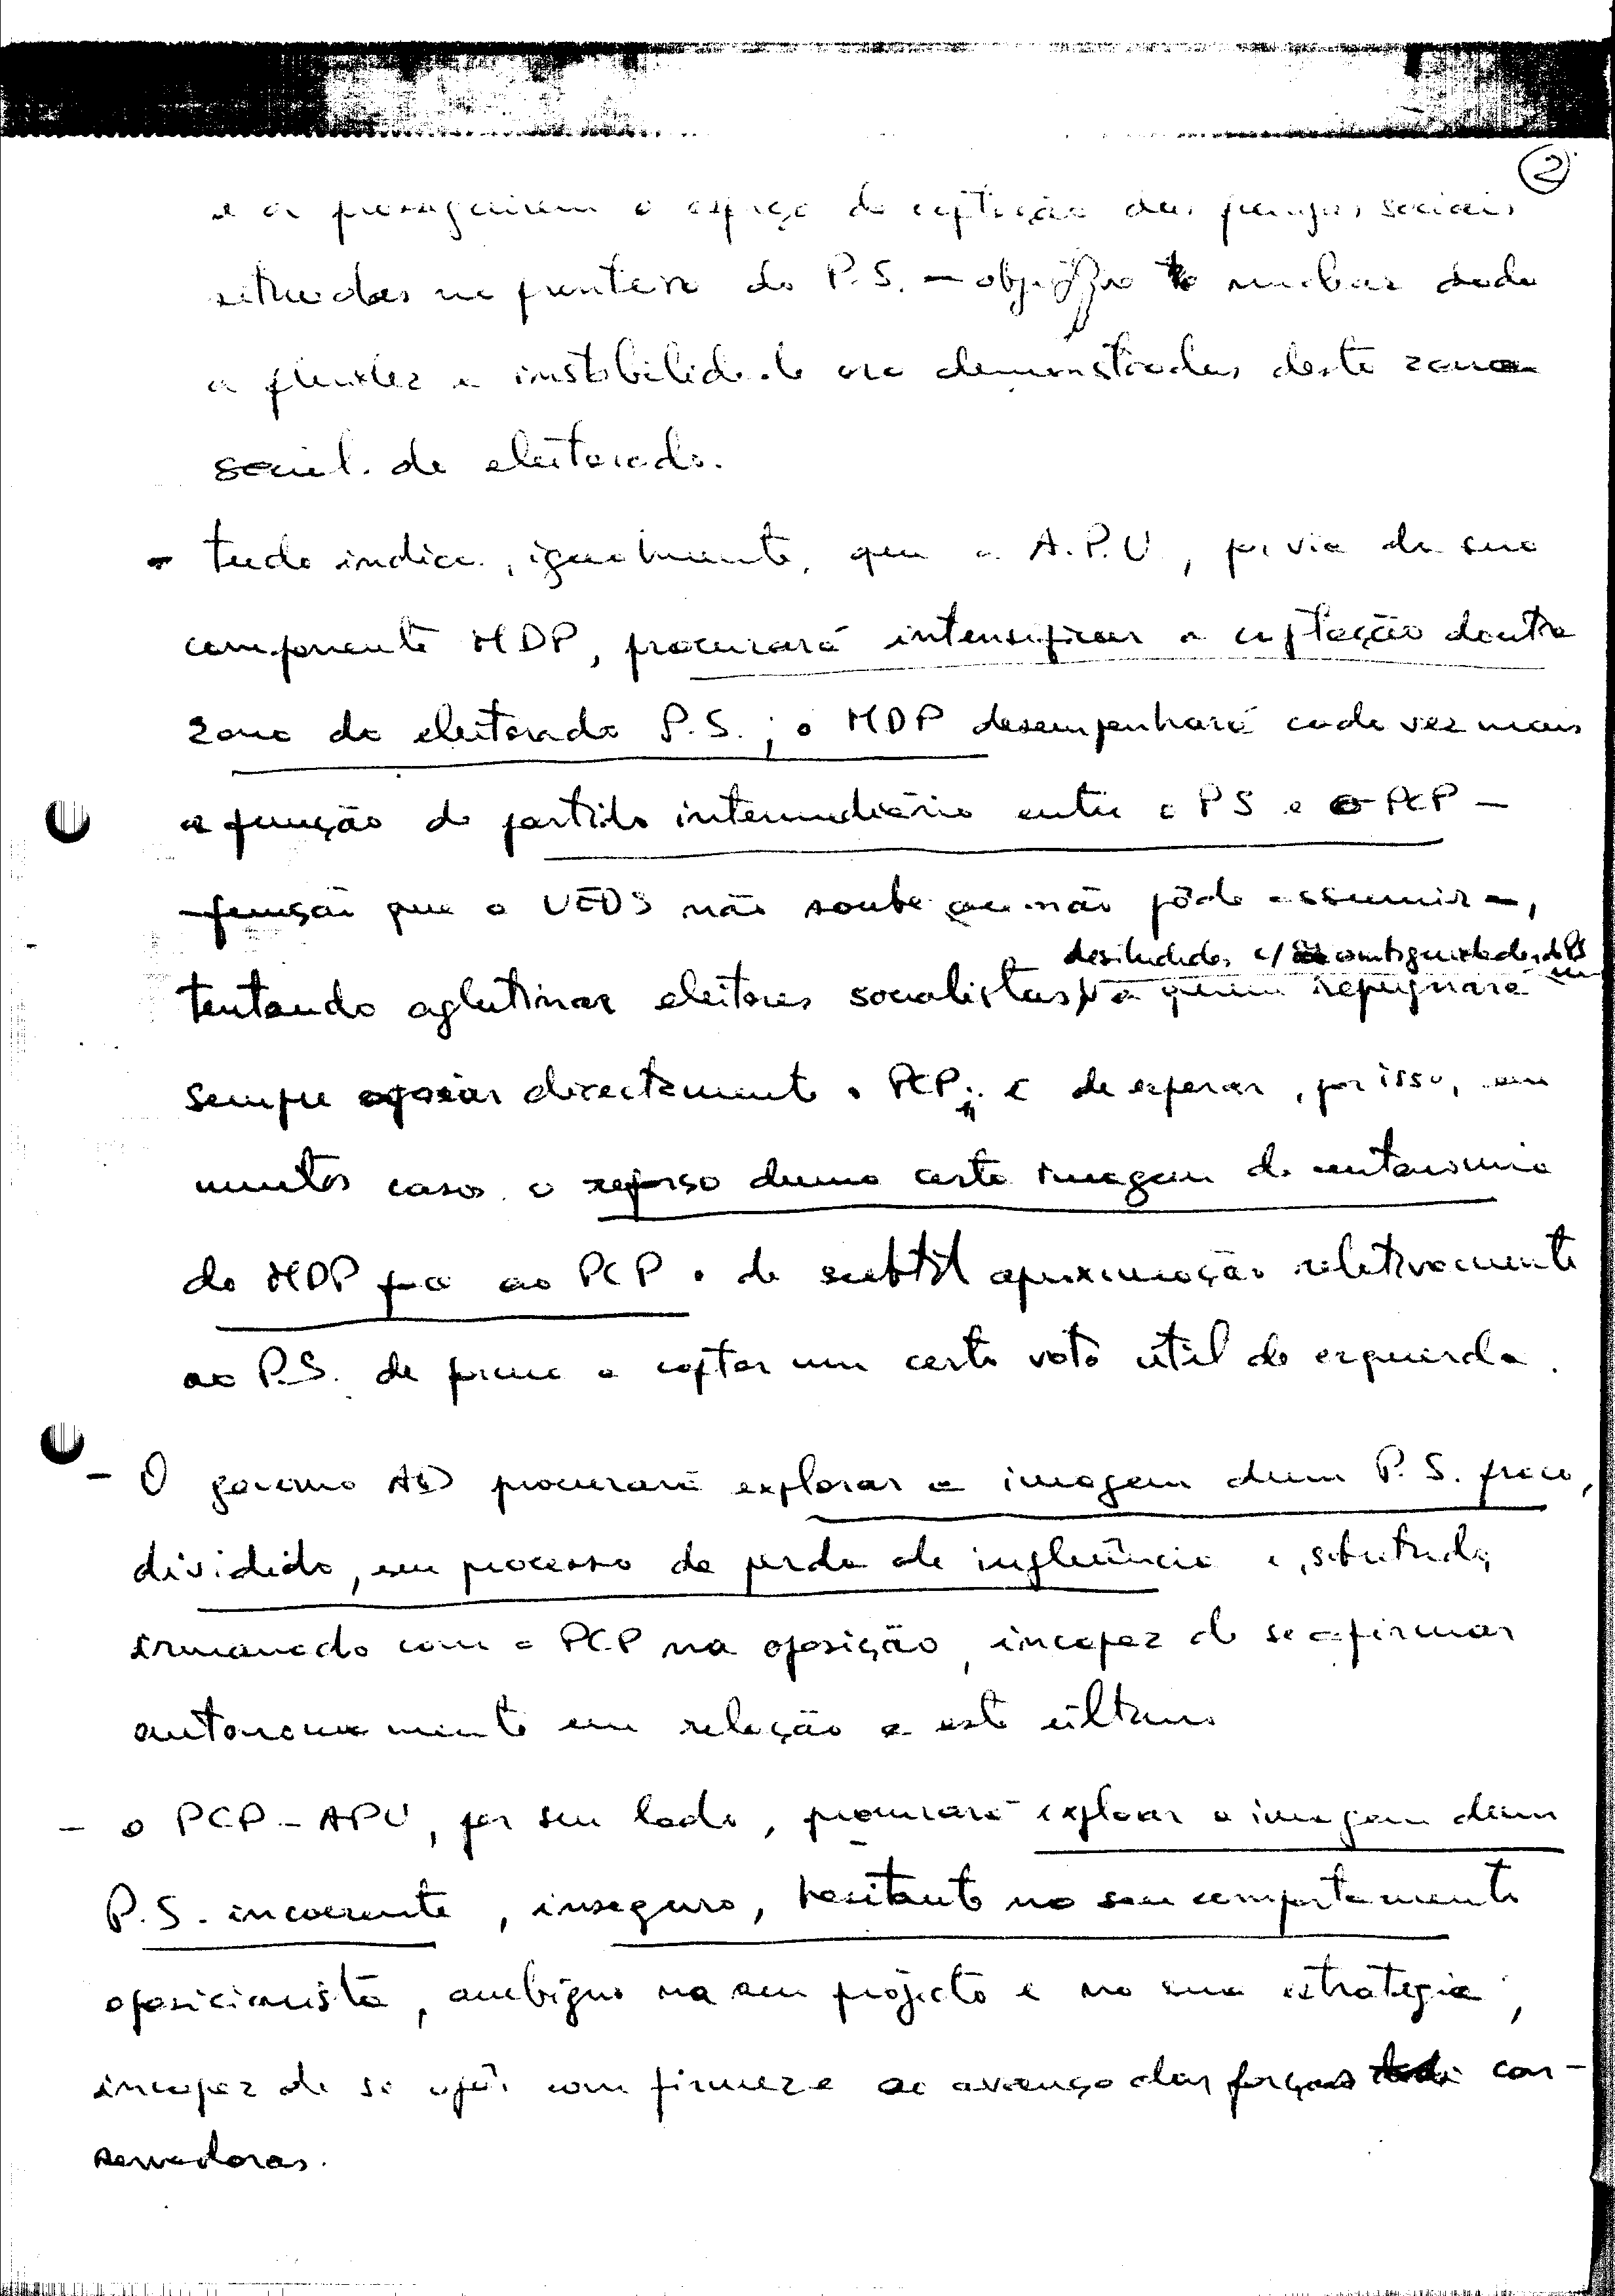 2
e a prosseguirem o espaço de captação das franjas sociais
situadas na fronteira do P.S. – objectivo a realizar dada
a fluidez e instabilidade ora demonstradas desta zona
social de eleitorado.
- tudo indica, igualmente, que a A.P.U, por via da sua
componente MDP, procurará intensificar a captação doutra
zona do eleitorado P.S.; o MDP desempenhará cada vez mais
a função de partido intermediário entre o PS e o PCP –
– função que a UEDS não soube ou não pôde assumir –,
desiludidos c/ as ambiguidades do PS
tentando aglutinar eleitores socialistas a quem repugnará
sempre apoiar directamente o PCP; é de esperar, por isso, em
muitos casos o reforço duma certa imagem de autonomia
do MDP face ao PCP e de subtil aproximação relativamente
ao P.S. de forma a captar um certo voto útil de esquerda.
- O governo AD procurará explorar a imagem dum P.S. fraco,
dividido, em processo de perda de influência e, sobretudo,
irmanado com o PCP na oposição, incapaz de se afirmar
autonomamente em relação a este último
- o PCP-APU, por seu lado, procurará explorar a imagem dum
P.S. incoerente, inseguro, hesitante no seu comportamento
oposicionista, ambíguo no seu projecto e na sua estratégia,
incapaz de se opôr com firmeza ao avanço das forças con-
servadoras.